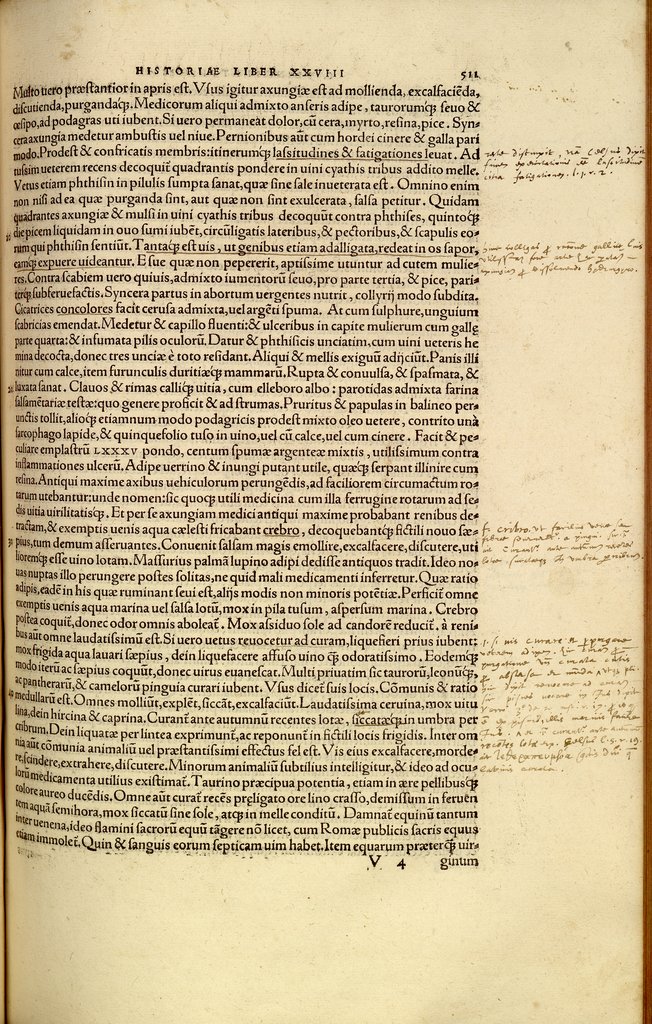 HISTORIAE LIBER XXVIII 511
Multo uero præstantior in apris est. Vsus igitur axungiæ est ad mollienda, excalfaciẽda,
discutienda, purgandaq́;. Medicorum aliqui admixto anseris adipe, taurorumq́; seuo &
œsipo, ad podagras uti iubent. Si uero permaneat dolor, cũ cera, myrto, resina, pice. Syn-
cera axungia medetur ambustis uel niue. Pernionibus aũt cum hordei cinere & galla pari
modo. Prodest & confricatis membris: itinerumq́; lassitudines & fatigationes leuat. Ad
tussim ueterem recens decoquit̃ quadrantis pondere in uini cyathis tribus addito melle.
Vetus etiam phthisin in pilulis sumpta sanat, quæ sine sale inueterata est. Omnino enim
non nisi ad ea quæ purganda sint, aut quæ non sint exulcerata, salsa petitur. Quidam
quadrantes axungiæ & mulsi in uini cyathis tribus decoquũt contra phthises, quintoq́;
die picem liquidam in ouo sumi iubẽt, circũligatis lateribus, & pectoribus, & scapulis eo-
rum qui phthisin sentiũt. Tantaq́; est uis, ut genibus etiam adalligata, redeat in os sapor,
eamq́; expuere uideantur. E sue quæ non pepererit, aptissime utuntur ad cutem mulie-
res. Contra scabiem uero quiuis, admixto iumentorũ seuo, pro parte tertia, & pice, pari-
terq́; subferuefactis. Syncera partus in abortum uergentes nutrit, collyrij modo subdita.
Cicatrices concolores facit cerusa admixta, uel argẽti spuma. At cum sulphure, unguium
scabricias emendat. Medetur & capillo fluenti: & ulceribus in capite mulierum cum gallæ
parte quarta: & infumata pilis oculorũ. Datur & phthisicis unciatim, cum uini ueteris he
mina decocta, donec tres unciæ è toto residant. Aliqui & mellis exiguũ adijciũt. Panis illi
nitur cum calce, item furunculis duritiæq́; mammarũ. Rupta & conuulsa, & spasmata, &
luxata sanat. Clauos & rimas calliq́; uitia, cum elleboro albo: parotidas admixta farina
salsamẽtariæ testæ: quo genere proficit & ad strumas. Pruritus & papulas in balineo per-
unctis tollit, alioq́; etiamnum modo podagricis prodest mixto oleo uetere, contrito unà
sarcophago lapide, & quinquefolio tuso in uino, uel cũ calce, uel cum cinere. Facit & pe-
culiare emplastrũ LXXXV pondo, centum spumæ argenteæ mixtis, utilissimum contra
inflammationes ulcerũ. Adipe uerrino & inungi putant utile, quæq́; serpant illinire cum
resina. Antiqui maxime axibus uehiculorum perungẽdis, ad faciliorem circumactum ro-
tarum utebantur: unde nomen: sic quoq́; utili medicina cum illa ferrugine rotarum ad se-
dis uitia uirilitatisq́;. Et per se axungiam medici antiqui maxime probabant renibus de-
tractam, & exemptis uenis aqua cælesti fricabant crebro, decoquebantq́; fictili nouo sæ-
pius, tum demum asseruantes. Conuenit salsam magis emollire, excalfacere, discutere, uti
lioremq́; esse uino lotam. Massurius palmã lupino adipi dedisse antiquos tradit. Ideo no-
uas nuptas illo perungere postes solitas, ne quid mali medicamenti inferretur. Quæ ratio
adipis, eadẽ in his quæ ruminant seui est, alijs modis non minoris potẽtiæ. Perficit̃ omne
exemptis uenis aqua marina uel salsa lotũ, mox in pila tusum, aspersum marina. Crebro
postea coquit̃, donec odor omnis aboleat̃. Mox assiduo sole ad candorẽ reducit̃. à reni-
bus aũt omne laudatissimũ est. Si uero uetus reuocetur ad curam, liquefieri prius iubent:
mox frigida aqua lauari sæpius, dein liquefacere affuso uino q̃ odoratissimo. Eodemq́;
modo iterũ ac sæpius coquũt, donec uirus euanescat. Multi priuatim sic taurorũ, leonũq́;,
ac pantherarũ, & camelorũ pinguia curari iubent. Vsus dicet̃ suis locis. Cõmunis & ratio
medullarũ est. Omnes molliũt, explẽt, siccãt, excalfaciũt. Laudatissima ceruina, mox uitu
lina, dein hircina & caprina. Curant̃ ante autumnũ recentes lotæ, siccatæq́; in umbra per
cribrum. Dein liquatæ per lintea exprimunt̃, ac reponunt̃ in fictili locis frigidis. Inter om
nia aũt cõmunia animaliũ uel præstantissimi effectus fel est. Vis eius excalfacere, morde-
re, scindere, extrahere, discutere. Minorum animaliũ subtilius intelligitur, & ideo ad ocu-
lorũ medicamenta utilius existimat̃. Taurino præcipua potentia, etiam in ære pellibusq́;
colore aureo ducẽdis. Omne aũt curat̃ recẽs præligato ore lino crasso, demissum in feruen
tem aquã semihora, mox siccatũ sine sole, atq́; in melle conditũ. Damnat̃ equinũ tantum
inter uenena, ideo flamini sacrorũ equũ tãgere nõ licet, cum Romæ publicis sacris equus
etiam immolet̃. Quin & sanguis eorum septicam uim habet. Item equarum præterq́; uir-
V 4 ginum